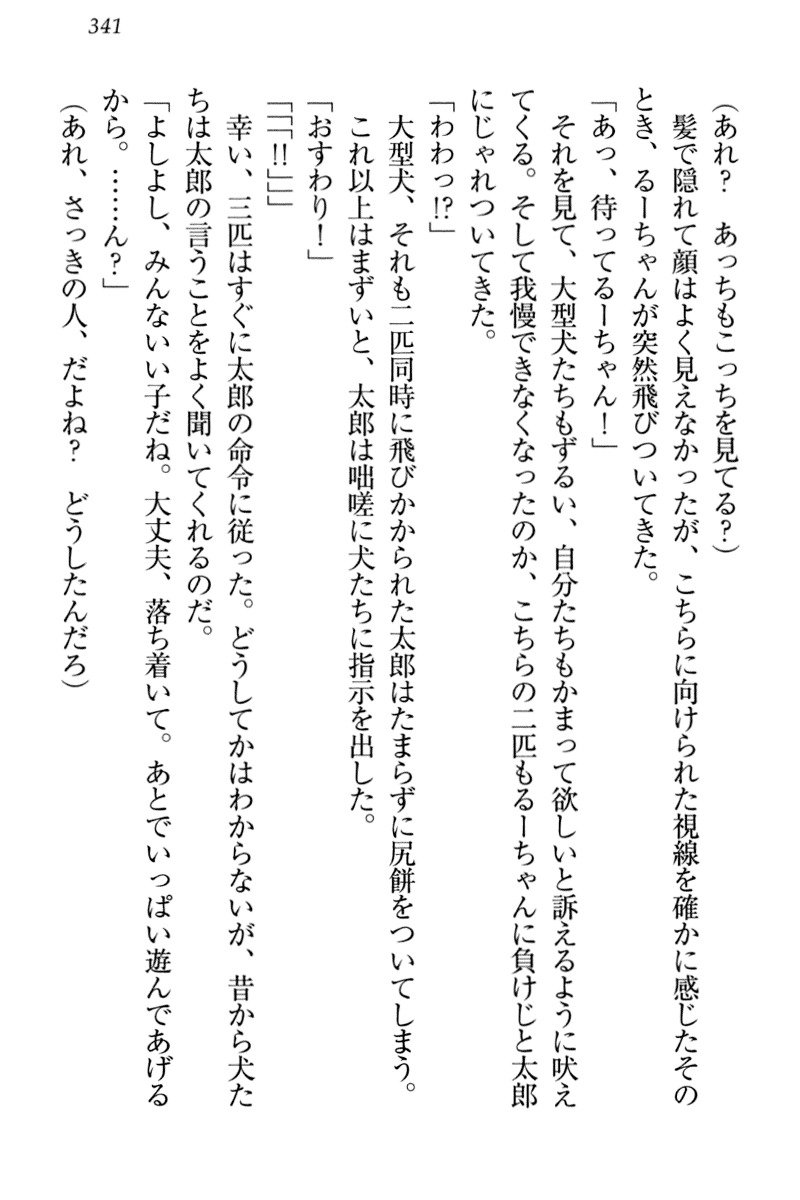 341
(あれ？　あっちもこっちを見てる？)
　髪で隠れて顔はよく見えなかったが、こちらに向けられた視線を確かに感じたその
とき、るーちゃんが突然飛びついてきた。
「あっ、待ってるーちゃん！」
　それを見て、大型犬たちもずるい、自分たちもかまって欲しいと訴えるように吠え
てくる。そして我慢できなくなったのか、こちらの二匹もるーちゃんに負けじと太郎
にじゃれついてきた。
「わわっ!?」
　大型犬、それも二匹同時に飛びかかられた太郎はたまらずに尻餅をついてしまう。
　これ以上はまずいと、太郎は咄嗟に犬たちに指示を出した。
「おすわり！」
「「「!!」」」
　幸い、三匹はすぐに太郎の命令に従った。どうしてかはわからないが、昔から犬た
ちは太郎の言うことをよく聞いてくれるのだ。
「よしよし、みんないい子だね。大丈夫、落ち着いて。あとでいっぱい遊んであげる
から。……ん？」
(あれ、さっきの人、だよね？　どうしたんだろ)